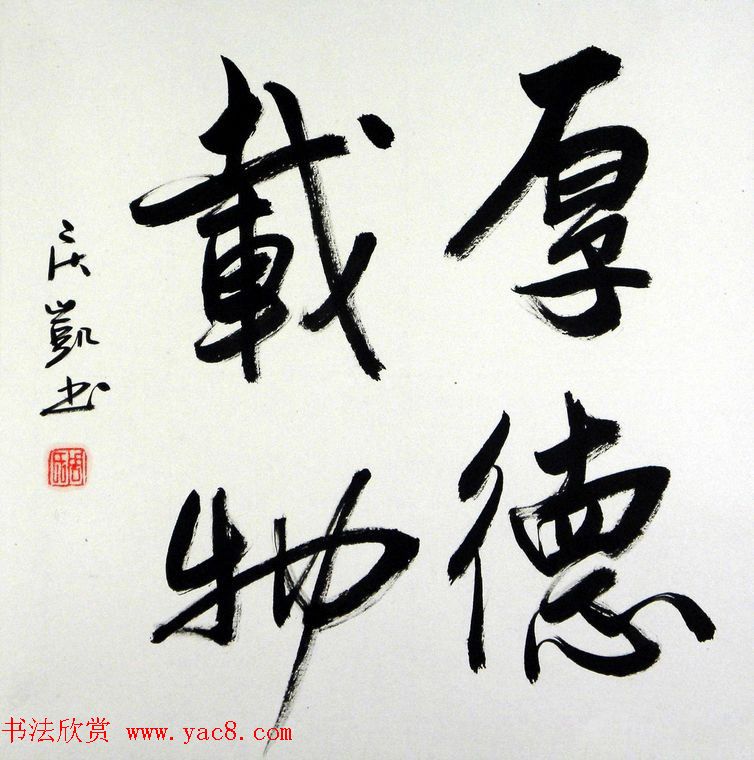 厚德
載物
凱书
书法欣赏 www.yac8.com